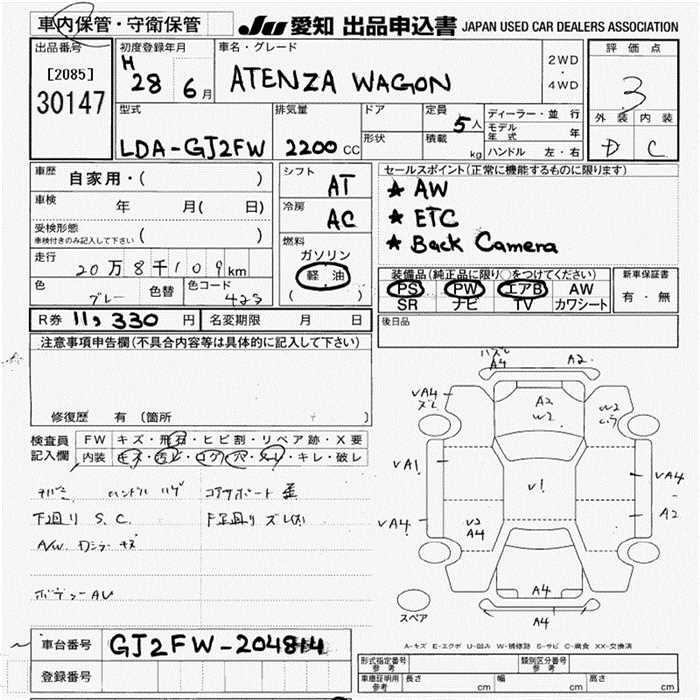 車内保管・守衛保管
JU 愛知 出品申込書 JAPAN USED CAR DEALERS ASSOCIATION
出品番号
[2085]
30147
初度登録年月
H 28 6月
車名・グレード
ATENZA WAGON
2WD
・
4WD
評価点
3
外装 内装
D C
型式
LDA-GJ2FW
排気量
2200 CC
ドア
形状
定員
5人
積載
kg
ディーラー・並行
モデル年式 年
ハンドル 左・右
車歴
自家用・( )
車検
年 月( 日)
受検形態
車検付きのみ記入して下さい ( )
走行
20万8千109km
色
グレー
色替
色コード
42S
シフト
AT
冷房
AC
燃料
ガソリン
軽油
( )
セールスポイント(正常に機能するものに限ります)
★ AW
★ ETC
★ Back Camera
装備品(純正品に限り○をつけてください)
PS PW エアB AW
SR ナビ TV カワシート
新車保証書
有・無
後日品
R券 11,330円
名変期限 月 日
注意事項申告欄(不具合内容等は具体的に記入して下さい)
修復歴 有(箇所 )
検査員
記入欄
FW キズ・飛石・ヒビ割・リペア跡・X要
内装 キズ・汚レ・コゲ・穴・スレ・キレ・破レ
ハンドル ハゲ
下廻り S.C.
ハズレ
A4
A2
VA4
ズレ
A2
W2
W2
VA1
V1
VA4
A2
VA4
V2
A4
A4
A4
スペア
A-キズ E-エクボ U-凹み W-補修跡 S-サビ C-腐食 XX-交換済
車台番号
GJ2FW-204814
登録番号
型式指定番号
参考
類別区分番号
参考
車庫証明用
参考
長さ cm 幅 cm 高さ cm